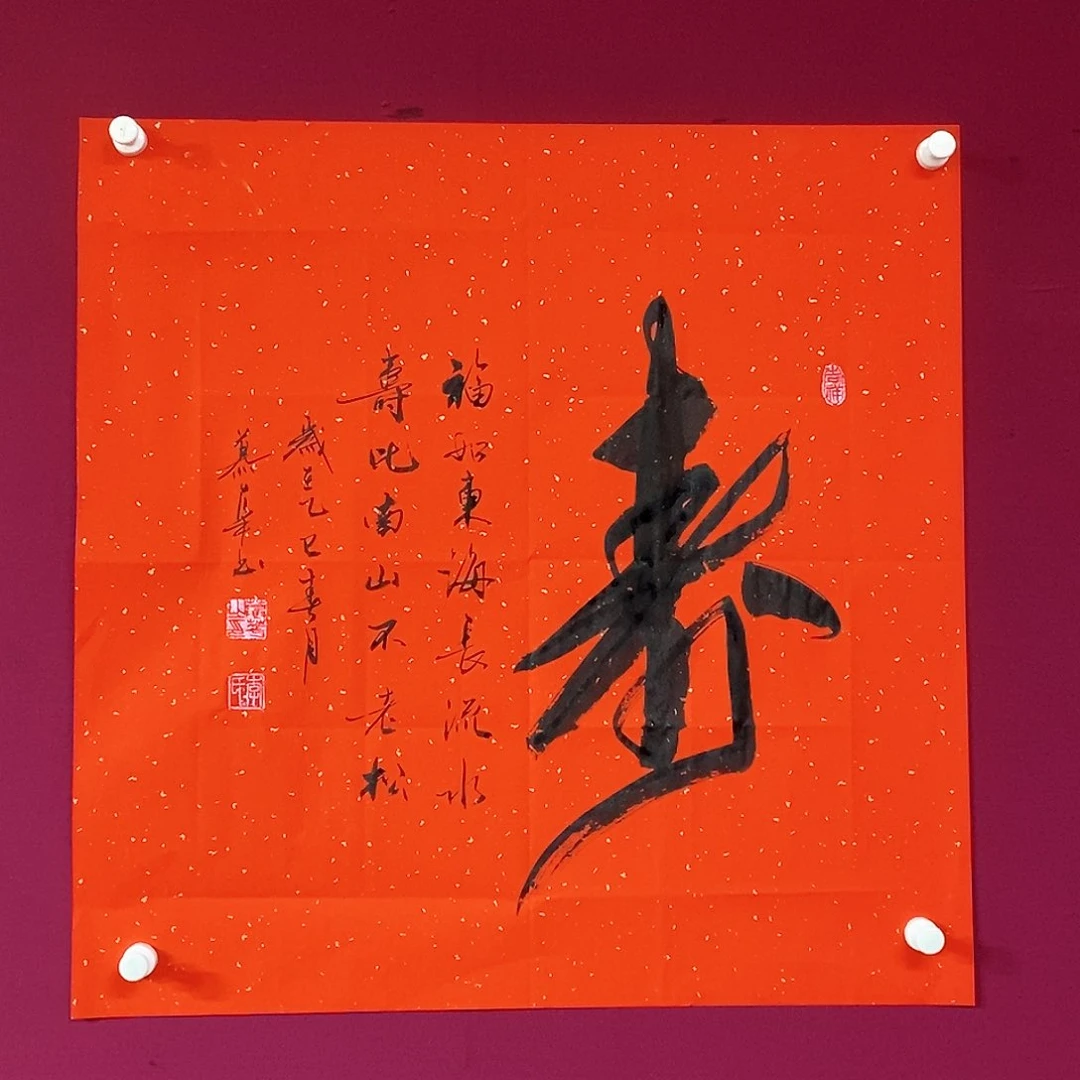 壽
福如東海長流水
壽比南山不老松
歲在乙巳春月
書
吉祥